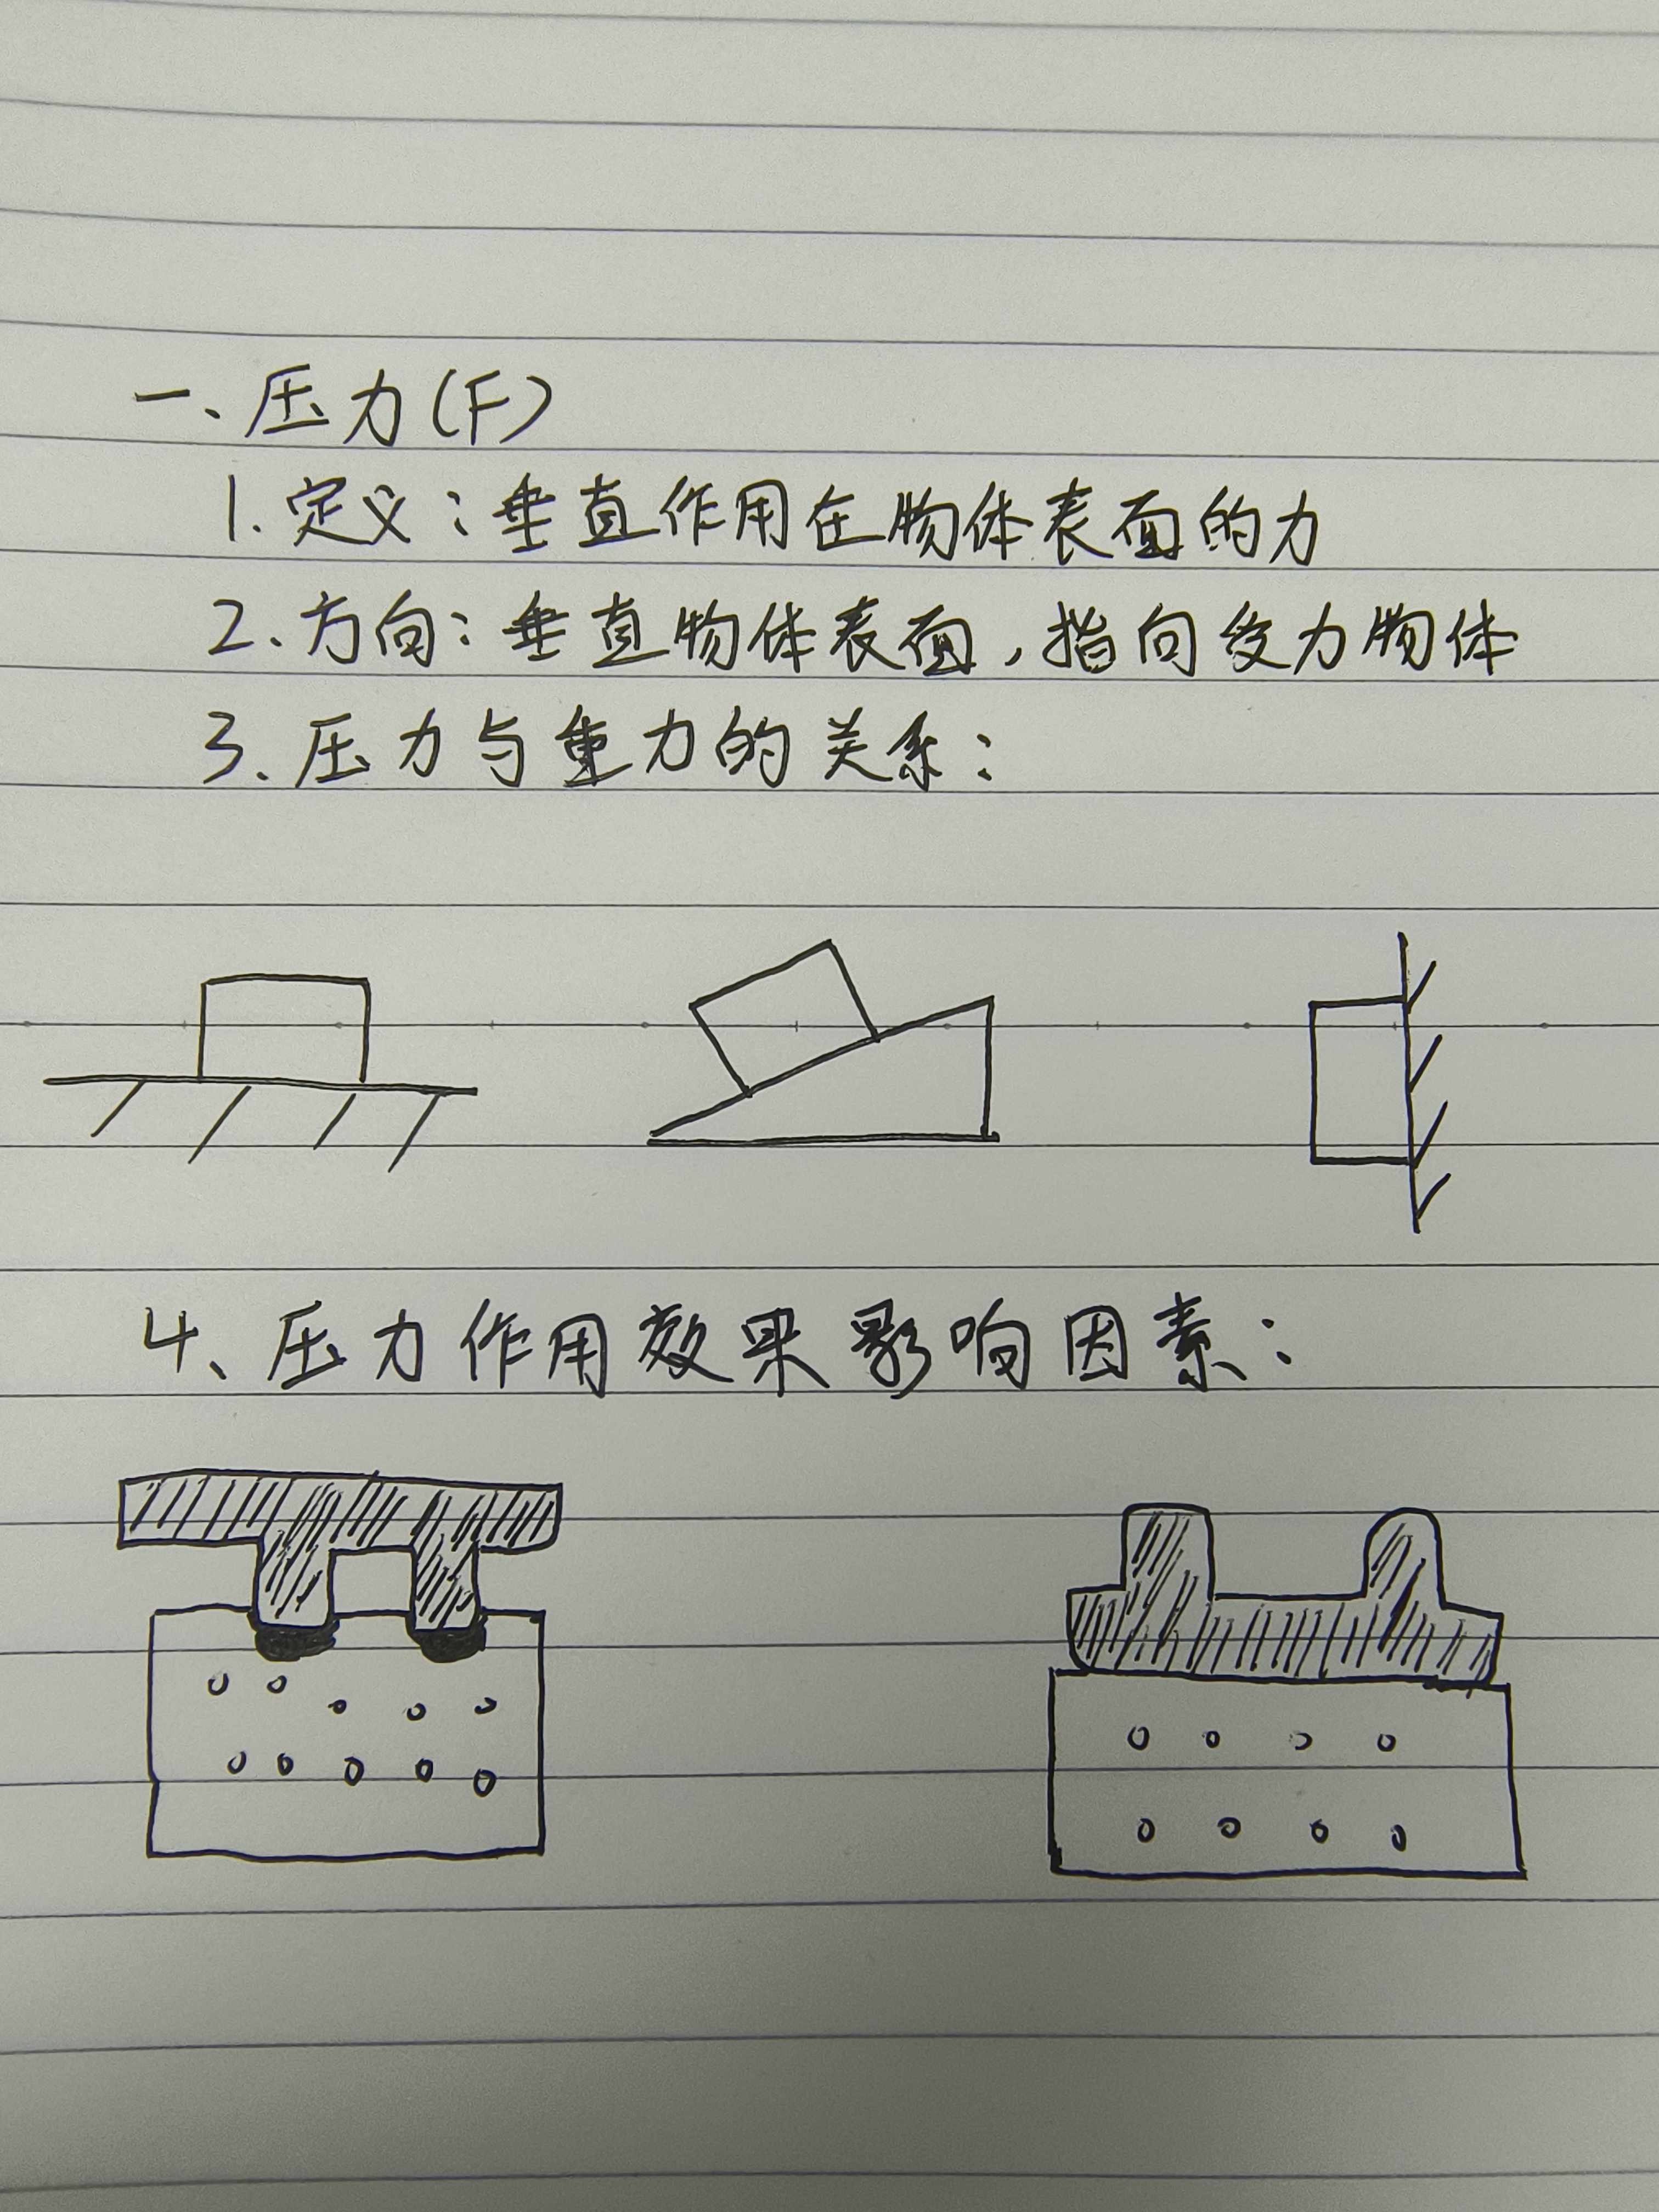 一、压力(F)
1.定义：垂直作用在物体表面的力
2.方向：垂直物体表面，指向受力物体
3.压力与重力的关系：
4、压力作用效果影响因素：